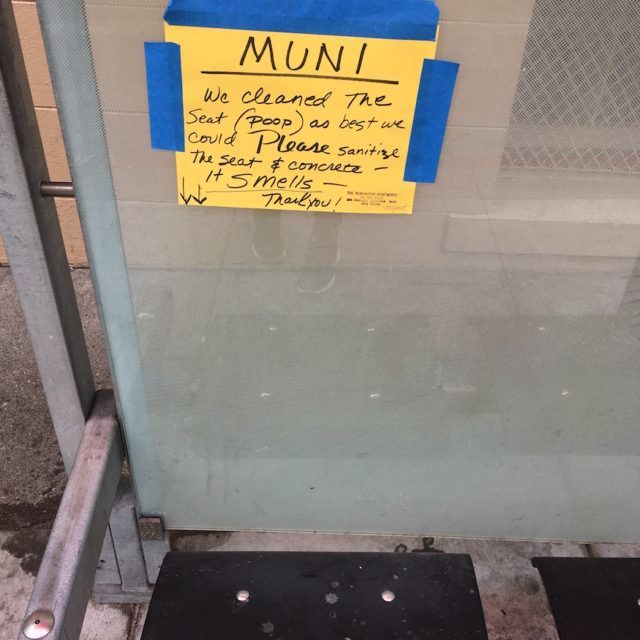 MUNI
We cleaned The
Seat (poop) as best we
could Please sanitize
The seat & concrete -
It Smells -
Thank you!